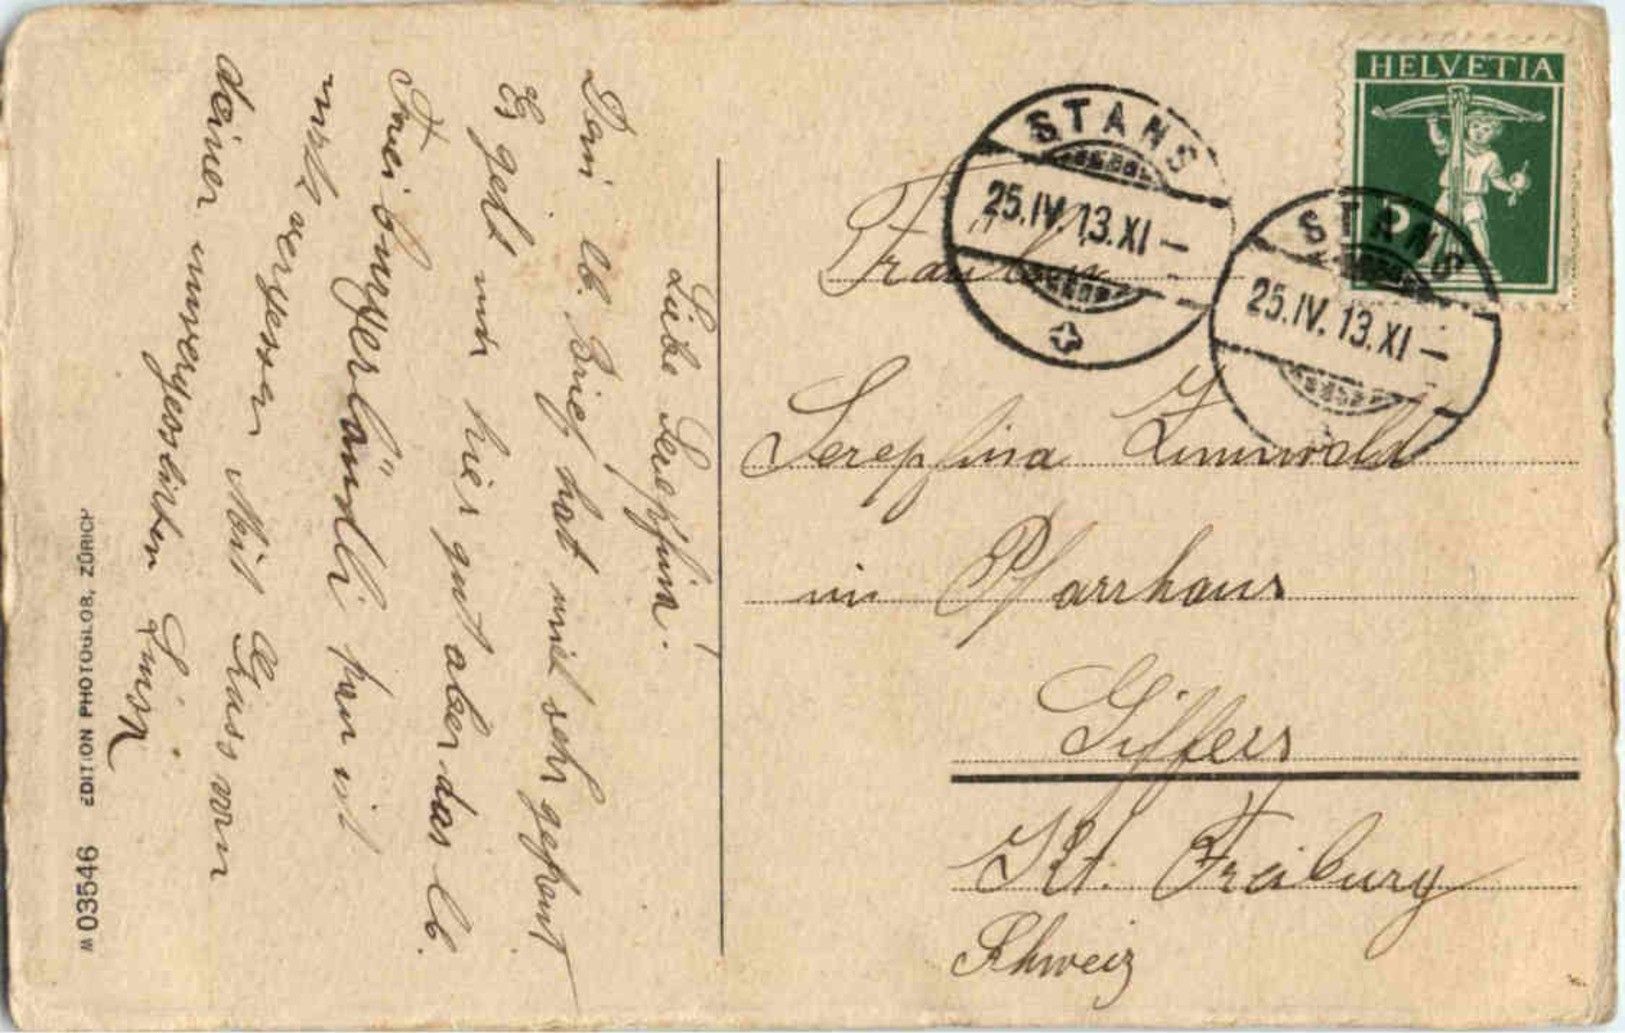 Liebe Serepfina.
Dein lb. Brief hat mich sehr gefreut
Es geht mir hier gut aber das lb.
Freiburgerländli kan ich
nicht vergessen Mit Gruss von
deiner unvergesslichen
HELVETIA
5
STANS
25.IV.13.XI–
STANS
25.IV.13.XI–
Fräulein
Serepfina
im Pfarrhaus
Giffers
Kt. Freiburg
Schweiz
03546 EDITION PHOTOGLOB, ZÜRICH